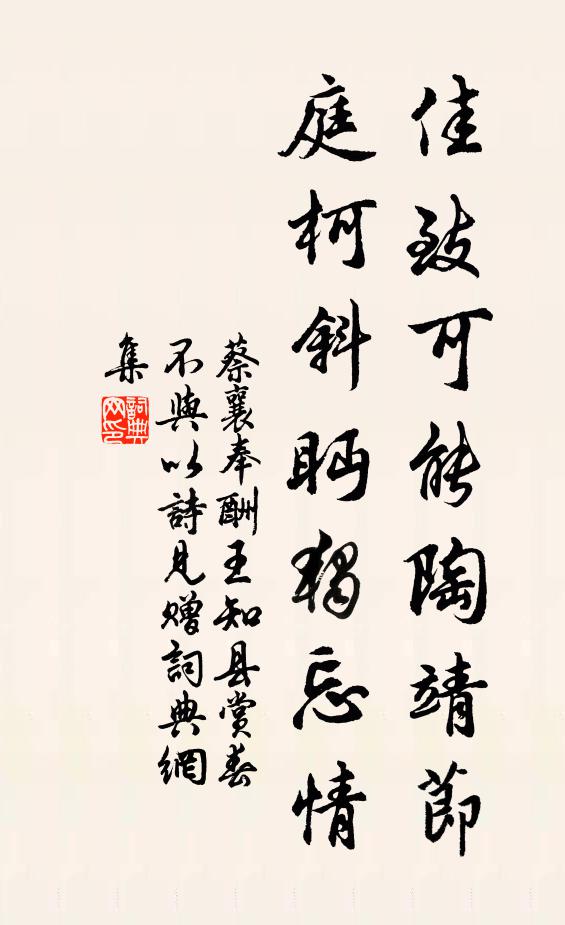 佳致可能陶靖節
庭柯斜眄獨忘情
蔡襄奉酬王知县賞春
不與以詩見贈詞典網
集
詞典
网印